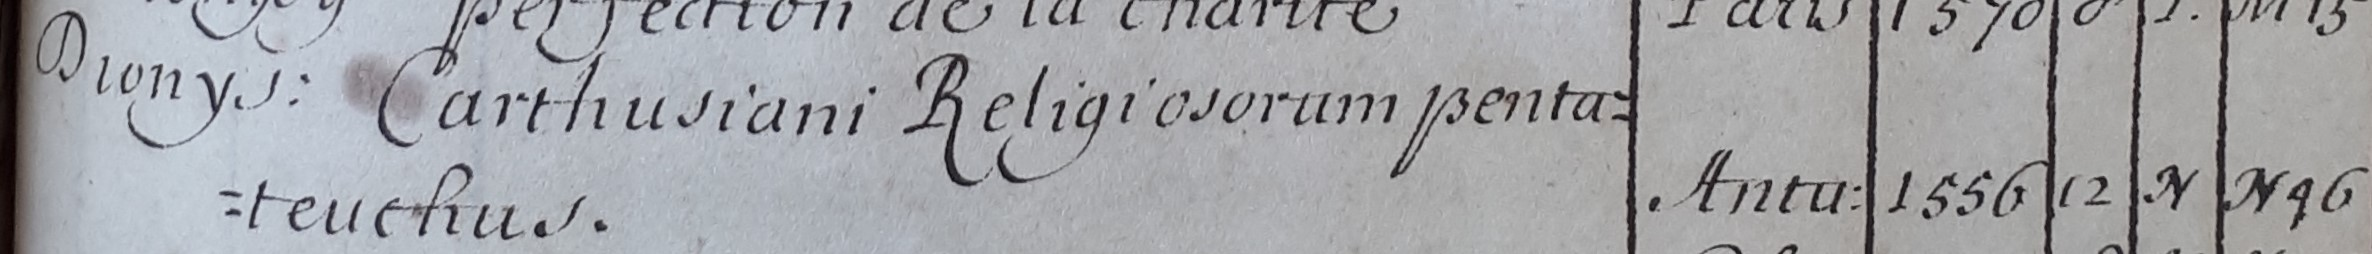 perfection de la charité Paris 1570 8 I.
Dionys: Carthusiani Religiosorum penta=
=teuchus. Antu: 1556 12 N N96